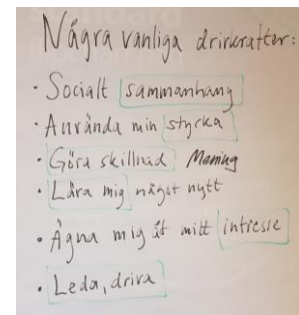 Några vanliga drivkrafter:
• Socialt sammanhang
• Använda min styrka
• Göra skillnad Mening
• Lära mig något nytt
• Ägna mig åt mitt intresse
• Leda, driva